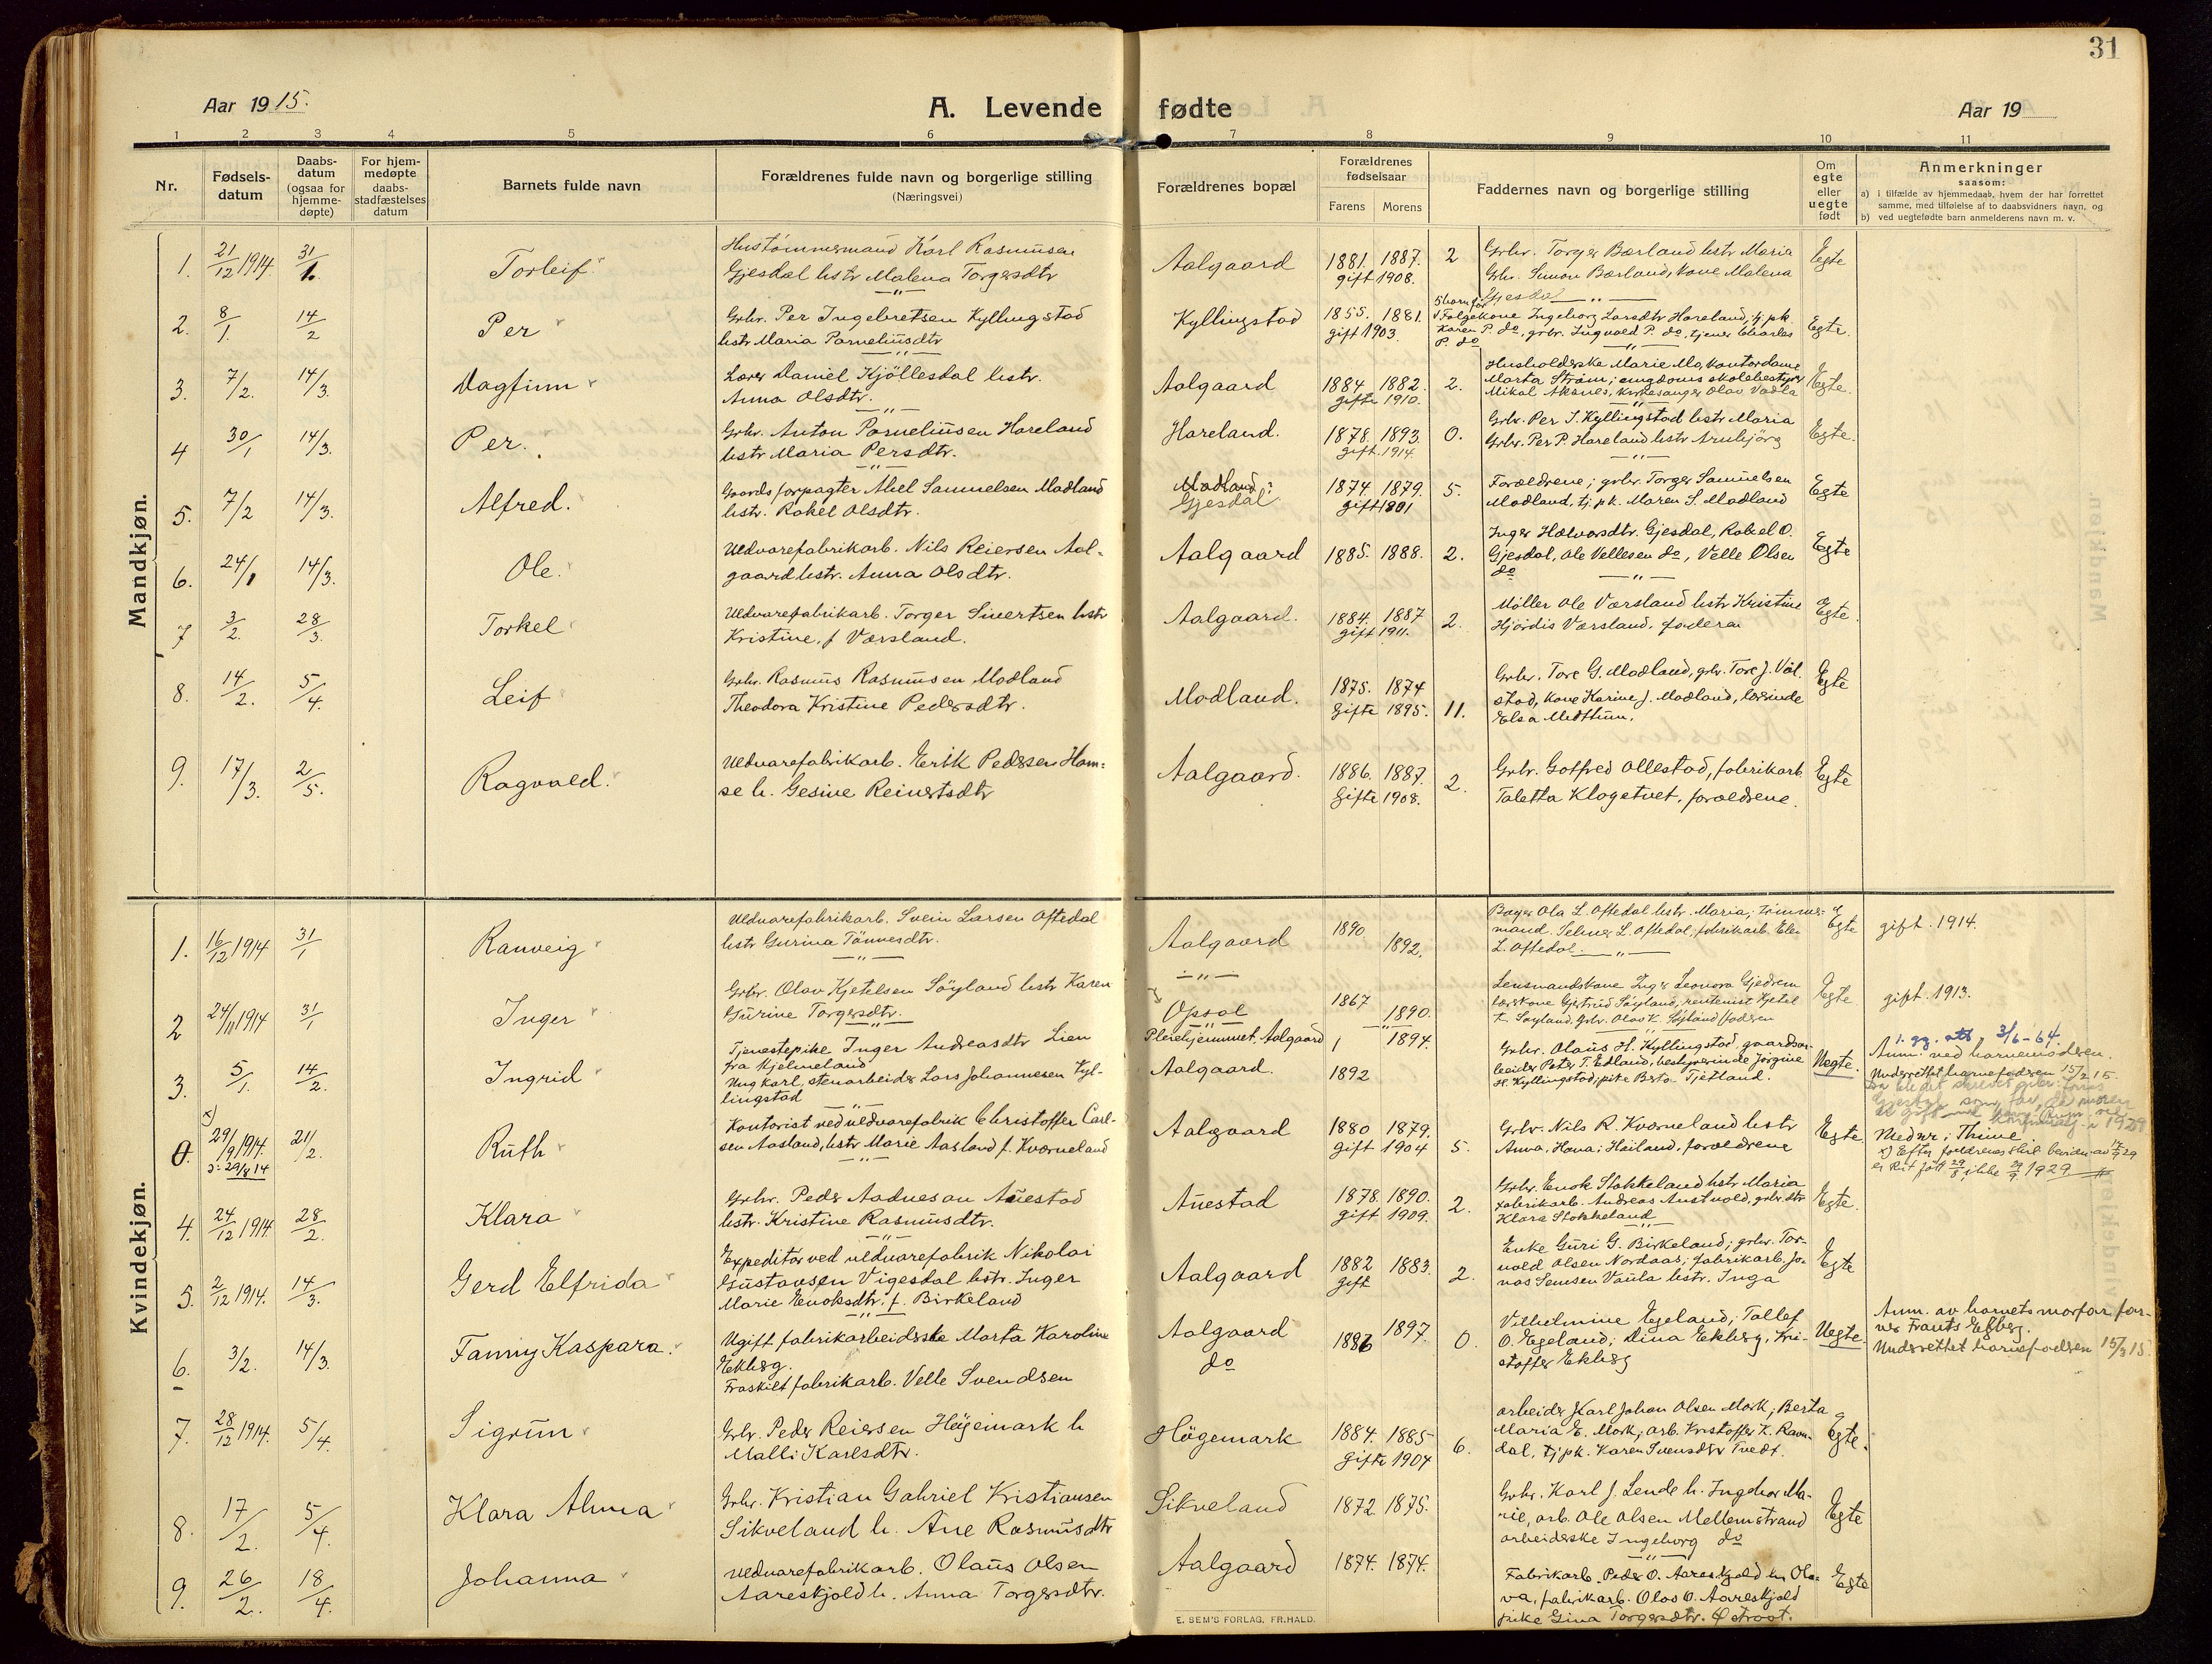 31
Aar 1915.
A. Levende fødte
Aar 19
1 2 3 4 5 6 7 8 9 10 11
Nr.
Fødsels-
datum
Daabs-
datum
(ogsaa for
hjemme-
døpte)
For hjem-
medøpte
daabs-
stadfæstelses
datum
Barnets fulde navn
Forældrenes fulde navn og borgerlige stilling
(Næringsvei)
Forældrenes bopæl
Forældrenes
fødselsaar
Farens Morens
Faddernes navn og borgerlige stilling
Om
egte
eller
uegte
født
Anmerkninger
saasom:
a) i tilfælde av hjemmedaab, hvem der har forrettet
samme, med tilføielse af to daabsvidners navn, og
b) ved uegtefødte barn anmelderens navn m. v.
Mandkjøn.
1. 21/12 1914. 31/1. Torleif
Hustømmermand Karl Rasmusen
Gjesdal hstr Malena Torgersdtr
Aalgaard 1881. 1887. 2
gift 1908.
Grbr. Torger Bærland hstr Maria
Grbr. Simon Bærland, kone Malena
Gjesdal
Egte
2. 8/1. 14/2 Per
Grbr. Per Ingebretsen Kyllingstad
hstr Maria Porneliusdtr
Kyllingstad 1855. 1881.
gift 1903.
Folgekone Ingeborg Larsdtr Hareland, tj. pk.
Karen P. do, grbr. Ingvald P. do, tjener Charles
P. do
Egte.
3. 7/2. 14/3. Dagfinn
Lærer Daniel Kjøllesdal hstr.
Anna Olsdtr.
Aalgaard 1884 1882. 2.
gifte 1910.
Husholderske Marie Mo, kontordame
Marta Strøm; ungdoms skolebestyr
Mikal Aksnes, kirkesanger Olav Vadla
Egte.
4 30/1 14/3. Per.
Grbr. Anton Porneliussen Hareland
hstr Maria Persdtr.
Hareland. 1878. 1893. 0.
gift. 1914.
Grbr. Per I. Kyllingstad hstr Maria
Grbr. Per P. Hareland hstr Arnbjørg
Egte.
5. 7/2 14/3. Alfred.
Gaardsforpagter Abel Samuelsen Madland
hstr. Rakel Olsdtr.
Madland;
Gjesdal
1874. 1879. 5.
gift 1901
Forældrene; grbr. Torger Samuelsen
Madland, tj. pk. Maren S. Madland
Egte
6. 24/1 14/3. Ole.
Uldvarefabrikarb. Nils Reiersen Aal-
gaard hstr. Anna Olsdtr.
Aalgaard 1885. 1888. 2.
Inger Halvorsdtr. Gjesdal, Rakel O.
Gjesdal, Ole Vellesen do, Velle Olsen
do
Egte
7 3/2. 28/3. Torkel
Uldvarefabrikarb. Torger Sivertsen hstr
Kristine, f Værsland.
Aalgaard. 1884. 1887 2.
gift 1911.
Møller Ole Værsland hstr Kristine
Hjørdis Værsland, faderen
Egte.
8. 14/2. 5/4. Leif
Grbr. Rasmus Rasmusen Madland
Theodora Kristine Pedersdtr.
Madland. 1875. 1874
Gifte 1895. 11.
Grbr. Tore G. Madland, grbr. Tore J. Vål-
stad, kone Karine J. Madland, lærerinde
Elsa Midtthun.
Egte
9. 17/3. 2/5. Ragvald.
Uldvarefabrikarb. Erik Pedersen Ham-
re h. Gesine Reinertsdtr
Aalgaard. 1886. 1887. 2.
Gifte 1908.
Grbr. Gotfred Ollestad, fabrikarb.
Taletta Klogetvet, forældrene.
Egte
Kvindekjøn.
1. 16/12 1914 31/1 Ranveig
Uldvarefabrikarb. Svein Larsen Oftedal
hstr Gurina Tønnesdtr.
Aalgaard 1890. 1892.
Bager Ola L. Oftedal hstr. Maria; tømmer-
mand. Selmer L. Oftedal, fabrikarb. Elen
L. Oftedal
Egte
gift. 1914.
2 24/11 1914 31/1 Inger
Grbr. Olav Kjetelsen Søyland hstr Karen
Gurine Torgersdtr.
Opsal 1867 1890.
Lensmandskone Inger Leonora Gjedrem
lærerkone Gjertrud Søyland, rentenist Kjetel
K. Søyland. Grbr. Olav K. Søyland faderen
Egte
gift. 1913.
3. 5/1. 14/2 Ingrid
Tjenestepike Inger Andreasdtr Lien
fra Hjelmeland
Ungkarl, stenarbeider Lars Johannesen Kyl-
lingstad
Pleiehjemmet, Aalgaard 1894.
Aalgaard. 1892
Grbr. Olaus H. Kyllingstad, gaardsar-
beider Peter T. Edland, bestyrerinde Jørgine
H. Kyllingstad, pike Berta Tjetland.
Uegte.
1. gg. att. 3/6-64.
Anm. ved barnemoderen.
Underrettet barnefaderen 15/2 15.
0. x) 29/9 1914. 21/2. Ruth
ɔ: 29/8 14
Kontorist ved uldvarefabrik Christoffer Carl-
sen Aasland, hstr Marie Aasland f. Kværneland
Aalgaard 1880 1879.
gift 1904 5.
Grbr. Nils R. Kværneland hstr
Anna, Hana; Høiland, forældrene
Egte.
Medør i Thime.
x) Efter forældrenes skrl. bevidn. av
er Rut født 29/8, ikke 29/9 1929
4. 24/12 1914. 28/2. Klara
Grbr. Peder Aadnesen Auestad
hstr. Kristine Rasmusdtr.
Auestad 1878. 1890. 2.
gift 1909.
Grbr. Enok Stokkeland hstr Maria
Fabrikarb. Andreas Austvold, grbr. dtr
Klara Stokkeland
Egte.
5. 2/12 1914. 14/3. Gerd Elfrida
Expeditør ved uldvarefabrik Nikolai
Gustavsen Vigesdal hstr. Inger
Marie Enoksdtr. f. Birkeland
Aalgaard 1882 1883. 2.
gift
Enke Guri G. Birkeland; grbr. Tor-
vald Olsen Nordaas; fabrikarb. Jo-
nas Semsen Vaula hstr. Inga
Egte
6. 3/2. 14/3. Fanny Kaspara.
Ugift fabrikarbeiderske Marta Karoline
Ekberg.
Fraskilt fabrikarb. Velle Svendsen
Aalgaard 1897. 0.
do 1886
Vilhelmine Egeland; Tallef
O. Egeland; Dina Ekberg, Kri-
stoffer Ekberg
Uegte.
Anm. av barnets morfar for-
ner Frants Ekberg.
Underrettet barnefaderen 15/3 15.
7. 28/12 1914. 5/4. Sigrun
Grbr. Peder Reiersen Høgemark h
Malli Karlsdtr.
Høgemark 1884. 1885 6.
Gifte 1904
arbeider Karl Johan Olsen Mork; Berta
Maria E. Mork; arb. Kristoffer K. Ravn-
dal, tj pk. Karen Svensdtr Tvedt.
Egte.
8. 17/2. 5/4. Klara Alma
Grbr. Kristian Gabriel Kristiansen
Sikveland h. Ane Rasmusdtr
Sikveland 1872. 1875.
Grbr. Karl J. Lende h. Ingebor Ma-
rie, arb. Ole Olsen Mellemstrand
arbeiderske Ingeborg do
Egte
9. 26/2. 18/4. Johanna
Uldvarefabrikarb. Olaus Olsen
Aareskjold h. Anna Torgersdtr.
Aalgaard 1874. 1874.
Fabrikarb. Peder O. Aareskjold h Ola-
va, fabrikarb. Olas O. Aareskjold
pike Gina Torgersdtr.
Egte
E. SEM'S FORLAG, FR.HALD.